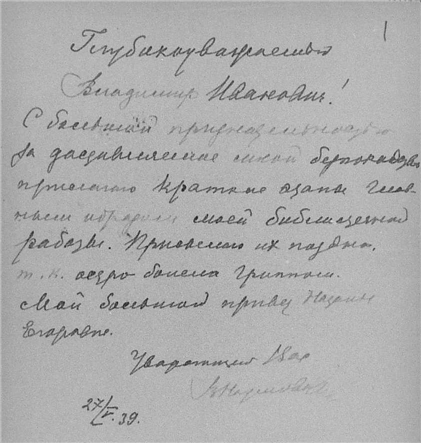 1
Глубокоуважаемый
Владимир Иванович!
С большой признательностью
за доставленное мной беспокойство
прилагаю краткие этапы глав-
ным образом моей библиотечной
работы. Присылаю их поздно,
т.к. остро болела гриппом.
Мой большой привет
Егоровне.
Уважающая Вас
27/V.39.